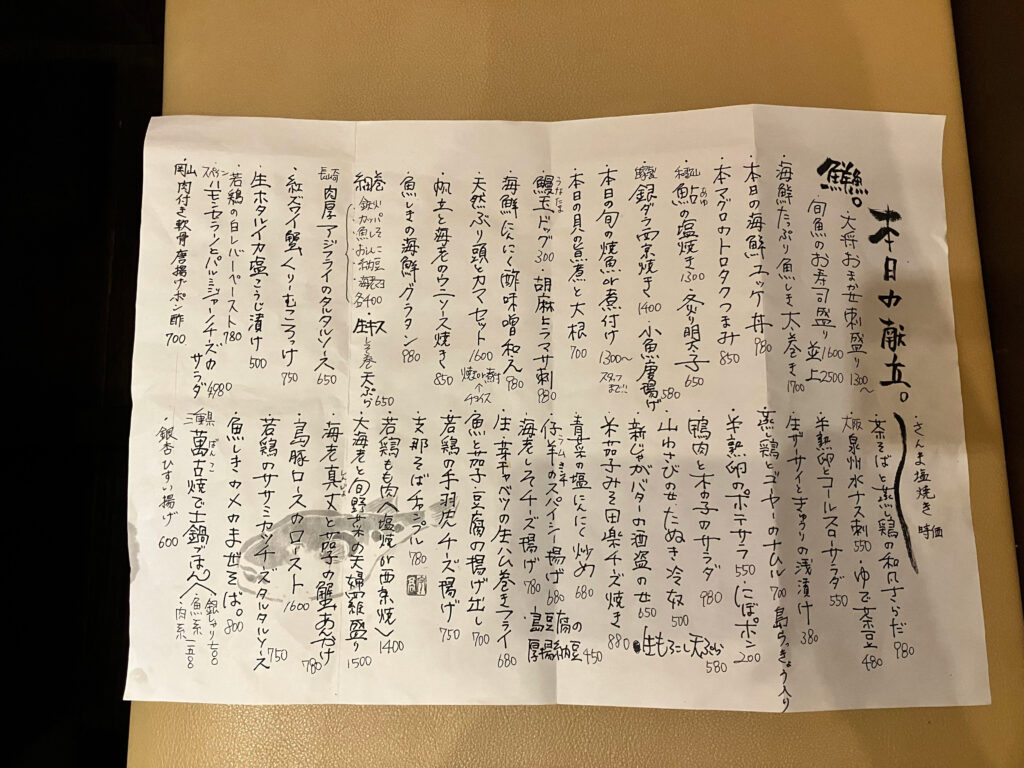 本日の献立。
・さんま塩焼き 時価
・大将おまかせ刺盛り 1300〜
旬魚のお寿司盛り 並1600 上2500
・海鮮たっぷり魚しき太巻き 1700
・本日の海鮮ユッケ丼 980
・本マグロのトロタクつまみ 850
鮎の塩焼き 1300 ・炙り明太子 650
・銀ダラ西京焼き 1400 小魚唐揚げ 580
・本日の旬の焼魚or煮付け 1300〜 スタッフまで!!
・本日の貝の煮と大根 700
・鰻玉ドッグ 300 ・胡麻ヒラマサ刺 980
・海鮮にんにく酢味噌和え 980
・天然ぶり頭とカマセット 1600 焼きor煮付 ↑チョイス
・帆立と海老のウニソース焼き 850
・魚しきの海鮮グラタン 980
細巻 各400 ・生キス しそ巻天ぷら 650
長崎 肉厚アジフライのタルタルソース 650
・紅ズワイ蟹クリームころっけ 750
・生ホタルイカ塩こうじ漬け 500
・若鶏の白レバーペースト 780
スペイン ハモンセラーノとパルミジャーノチーズのサラダ 980
岡山 肉付き軟骨唐揚げポン酢 700
・茶そばと蒸し鶏の和風さらだ 980
大阪泉州水ナス刺 550 ・ゆで茶豆 480
・半熟卵とコールスローサラダ 550
・生ザーサイときゅうりの浅漬け 380
・蒸し鶏とゴーヤーのナムル 700 島らっきょう入り
・半熟卵のポテサラ 550 ・にぼポン 200
・鴨肉と木の子のサラダ 980
・山わさびのせたぬき冷奴 500
・新じゃがバターの酒盗のせ 650 ・生もろこし天ぷら 580
・米茄子みそ田楽チーズ焼き 880
・青菜の塩にんにく炒め 680 島豆腐の厚揚納豆 450
・仔羊のスパイシー揚げ 680
・海老しそチーズ揚げ 780
・生春キャベツの生ハム巻きフライ 680
・魚と茄子・豆腐の揚げ出し 700
・若鶏の手羽先チーズ揚げ 750
・支那そばチャンプル 780
・若鶏もも肉〈塩焼きor西京焼〉 1400
・大海老と旬野菜の天婦羅盛り 1500
・海老真丈と茄子の蟹あんかけ 780
・島豚ロースのロースト 1600
・若鶏のササミカツチーズタルタルソース 750
・魚しきの〆のまぜそば。 800
三重県 萬古焼で土鍋ごはん〈・銀しゃり ・魚系 ・肉系
・銀杏ひすい揚げ 600